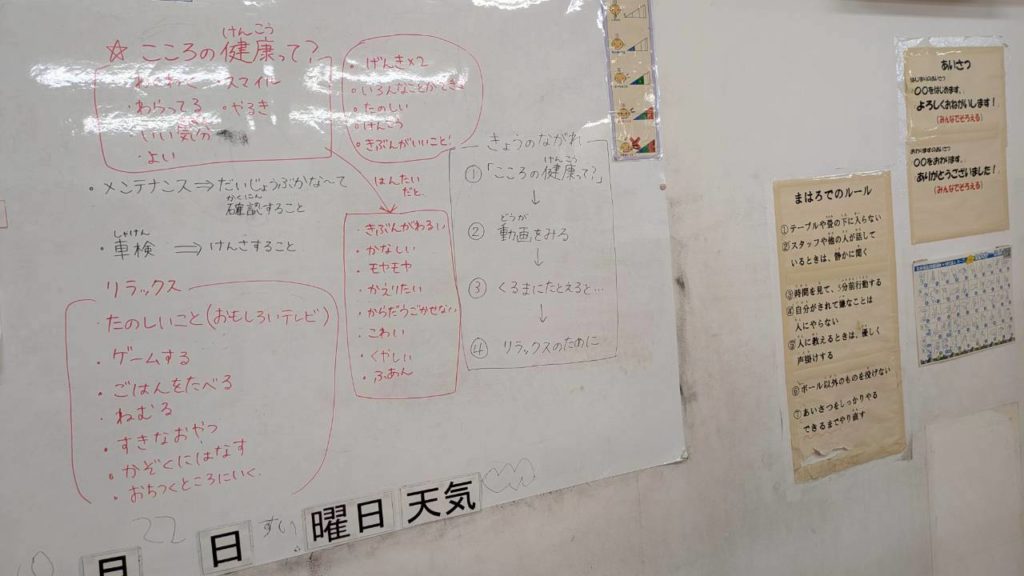 ☆ こころの健康って?
けんこう
スマイル
・わらってる
・やるき
・いい気分
・よい
・げんきメス
・いろんなことができる
・たのしい
・けんこう
・きぶんがいいこと!
はんたい
だと、
・メンテナンス⇒だいじょうぶかな〜て
かくにん
確認すること
しゃけん
・車検 ⇒けんさすること
・きぶんがわるい
・かなしい
・モヤモヤ
・かえりたい
・からだうごかせない
・こわい
・くやしい
・ふあん
リラックス
・たのしいこと(おもしろいテレビ)
・ゲームする
・ごはんをたべる
・ねむる
・すきなおやつ
・かぞくにはなす
・おちつくところにいく。
きょうのながれ
けんこう
①「こころの健康って?」
↓
どうが
② 動画をみる
↓
③ くるまにたとえると…
↓
④ リラックスのために
月
22
日
すい
曜日
天気
まはろでのルール
①テーブルや畳の下に入らない
②スタッフや他の人が話して
いるときは、静かに聞く
③時間を見て、5分前行動する
④自分がされて嫌なことは
人にやらない
⑤人に教えるときは、優しく
声掛けする
⑥ボール以外のものを投げない
⑦あいさつをしっかりやる
できるまでやり直す
あいさつ
はじまりのあいさつ
〇〇をはじめます。
よろしくおねがいします!
(みんなでそろえる)
おわりますのあいさつ
〇〇をおわります。
ありがとうございました!
(みんなでそろえる)